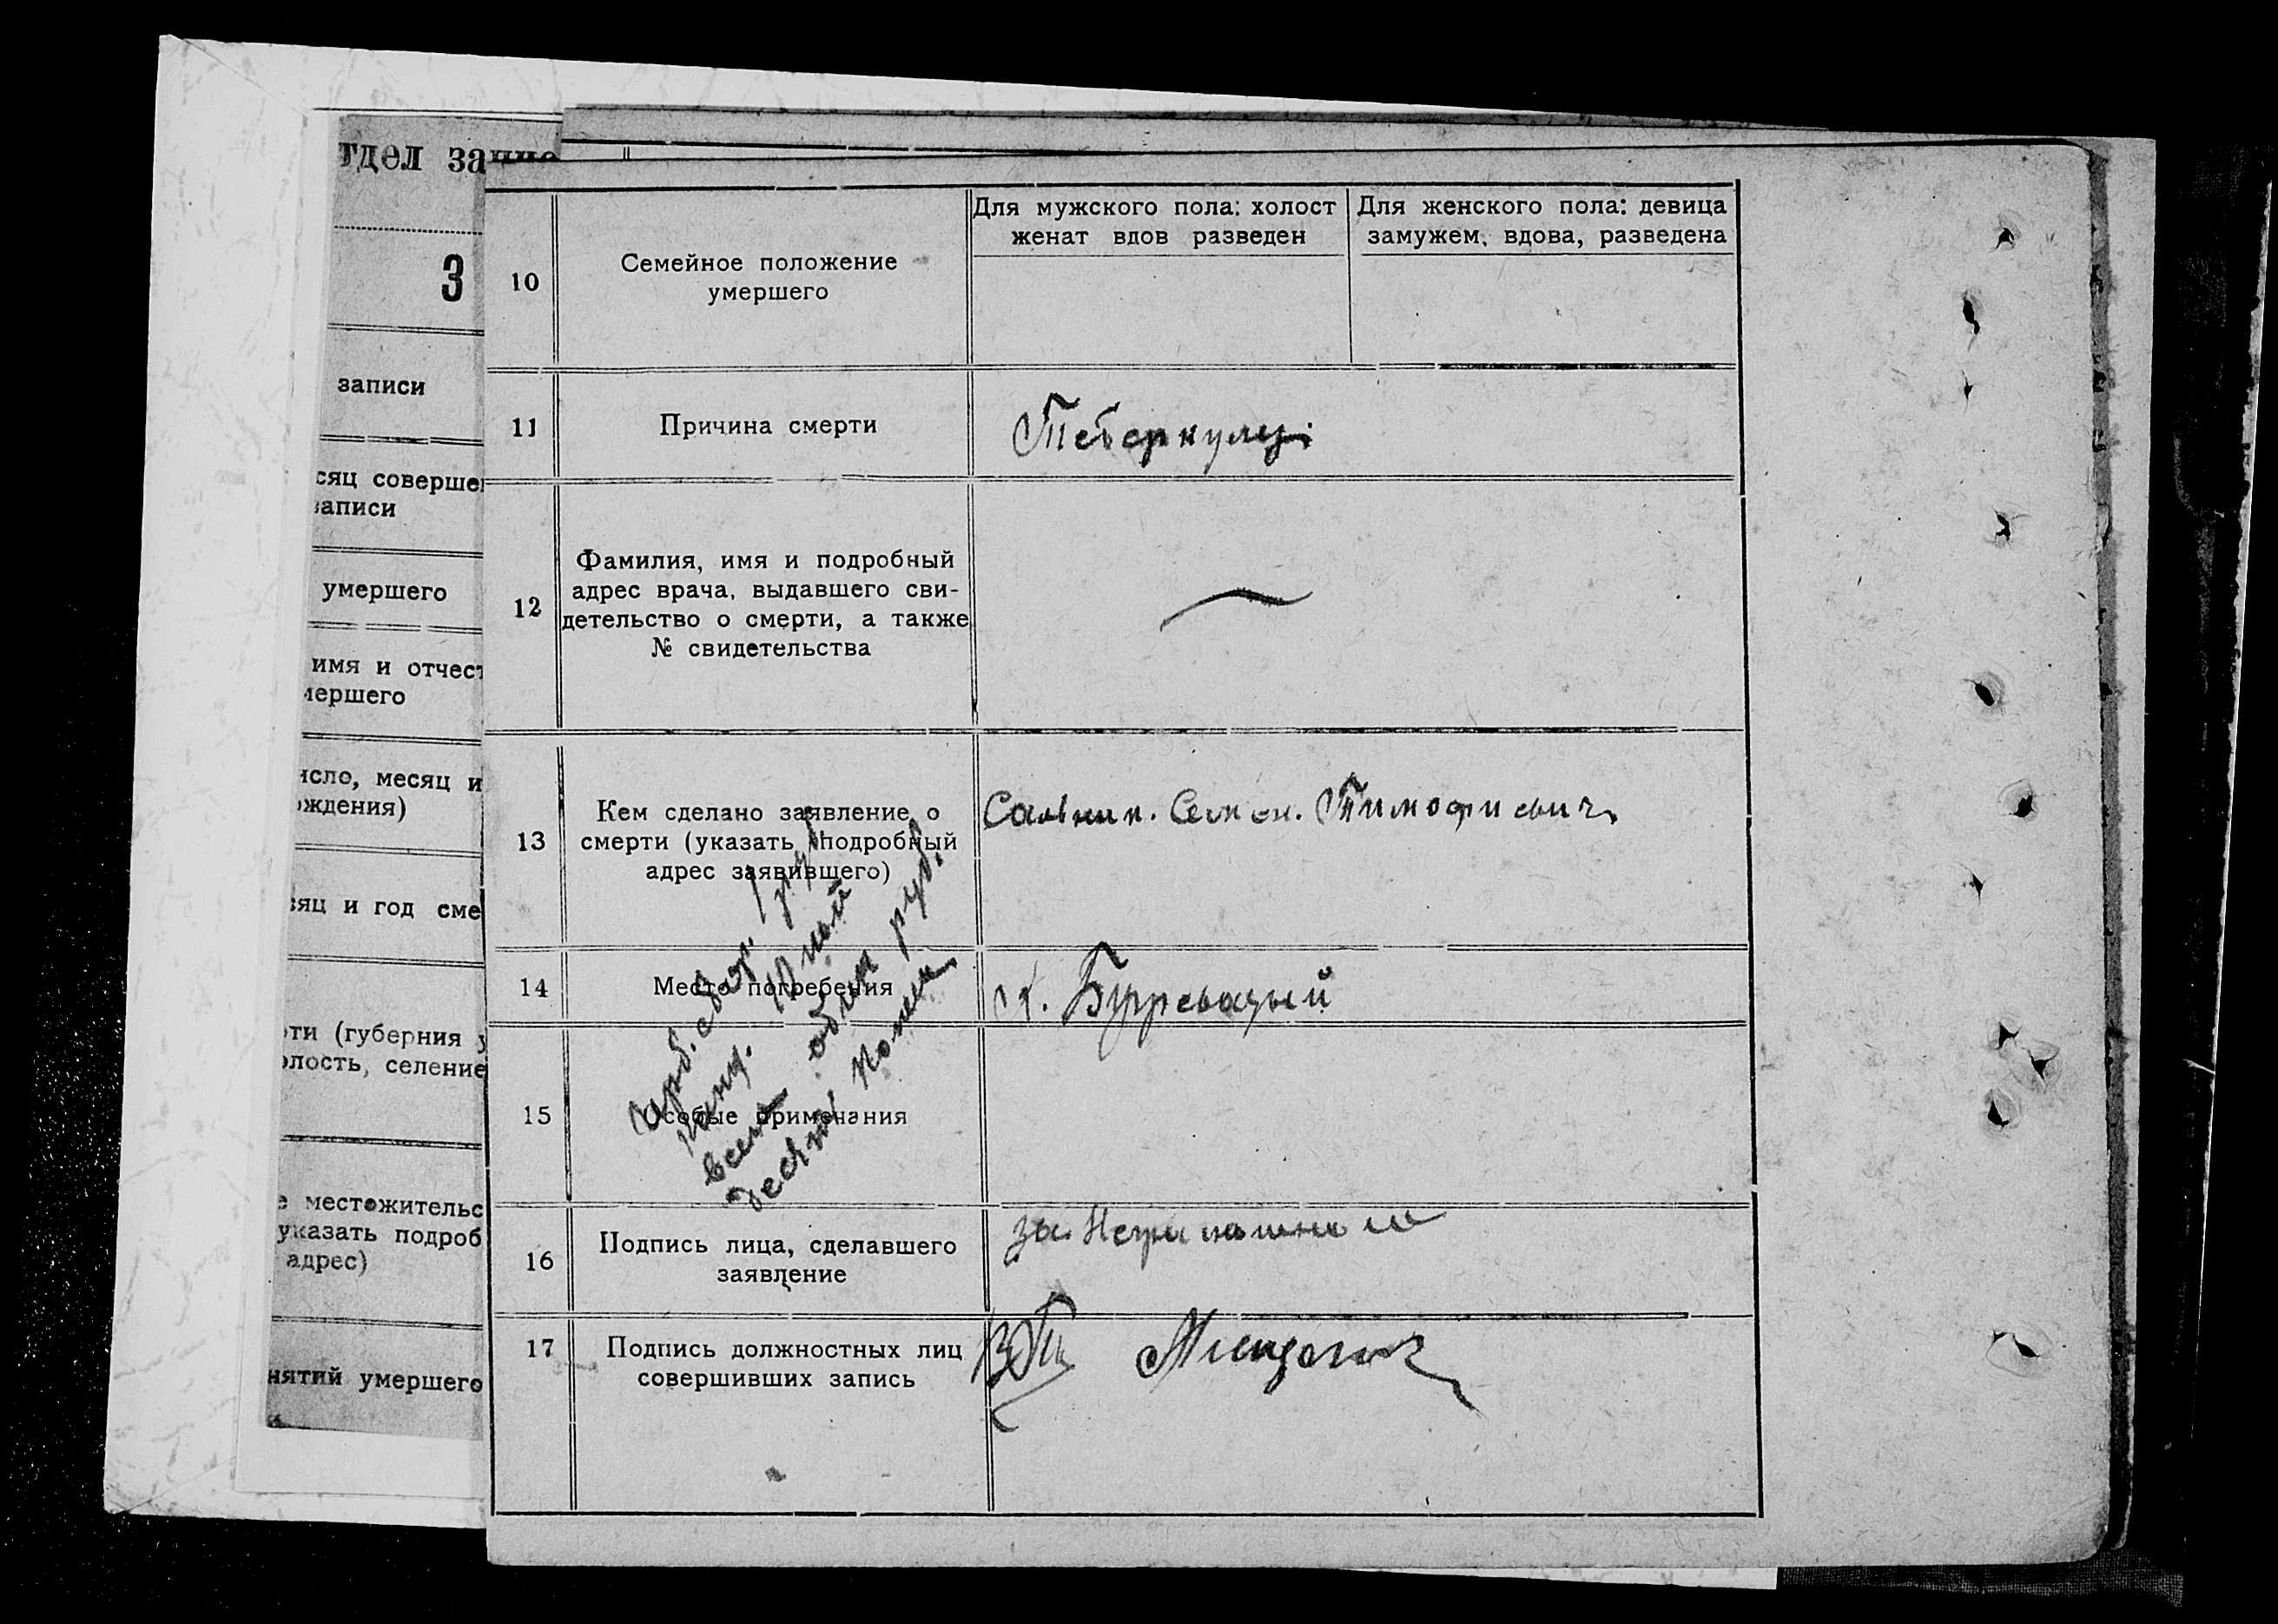 тдел запис
3
записи
сяц соверше
записи
умершего
имя и отчест
мершего
исло, месяц и
ождения)
сяц и год сме
рти (губерния у
олость, селение
е местожительс
указать подроб
адрес)
нятий умершего
10
Семейное положение
умершего
Для мужского пола: холост
женат вдов разведен
Для женского пола: девица
замужем, вдова, разведена
11
Причина смерти
Теберкулез
12
Фамилия, имя и подробный
адрес врача, выдавшего сви-
детельство о смерти, а также
№ свидетельства
13
Кем сделано заявление о
смерти (указать подробный
адрес заявившего)
Семен. Тимофиевич
14
Место погребения
15
Особые примечания
Герб. сбор. 1 руб
канц.
всего один руб.
десять копеек
16
Подпись лица, сделавшего
заявление
за
17
Подпись должностных лиц
совершивших запись